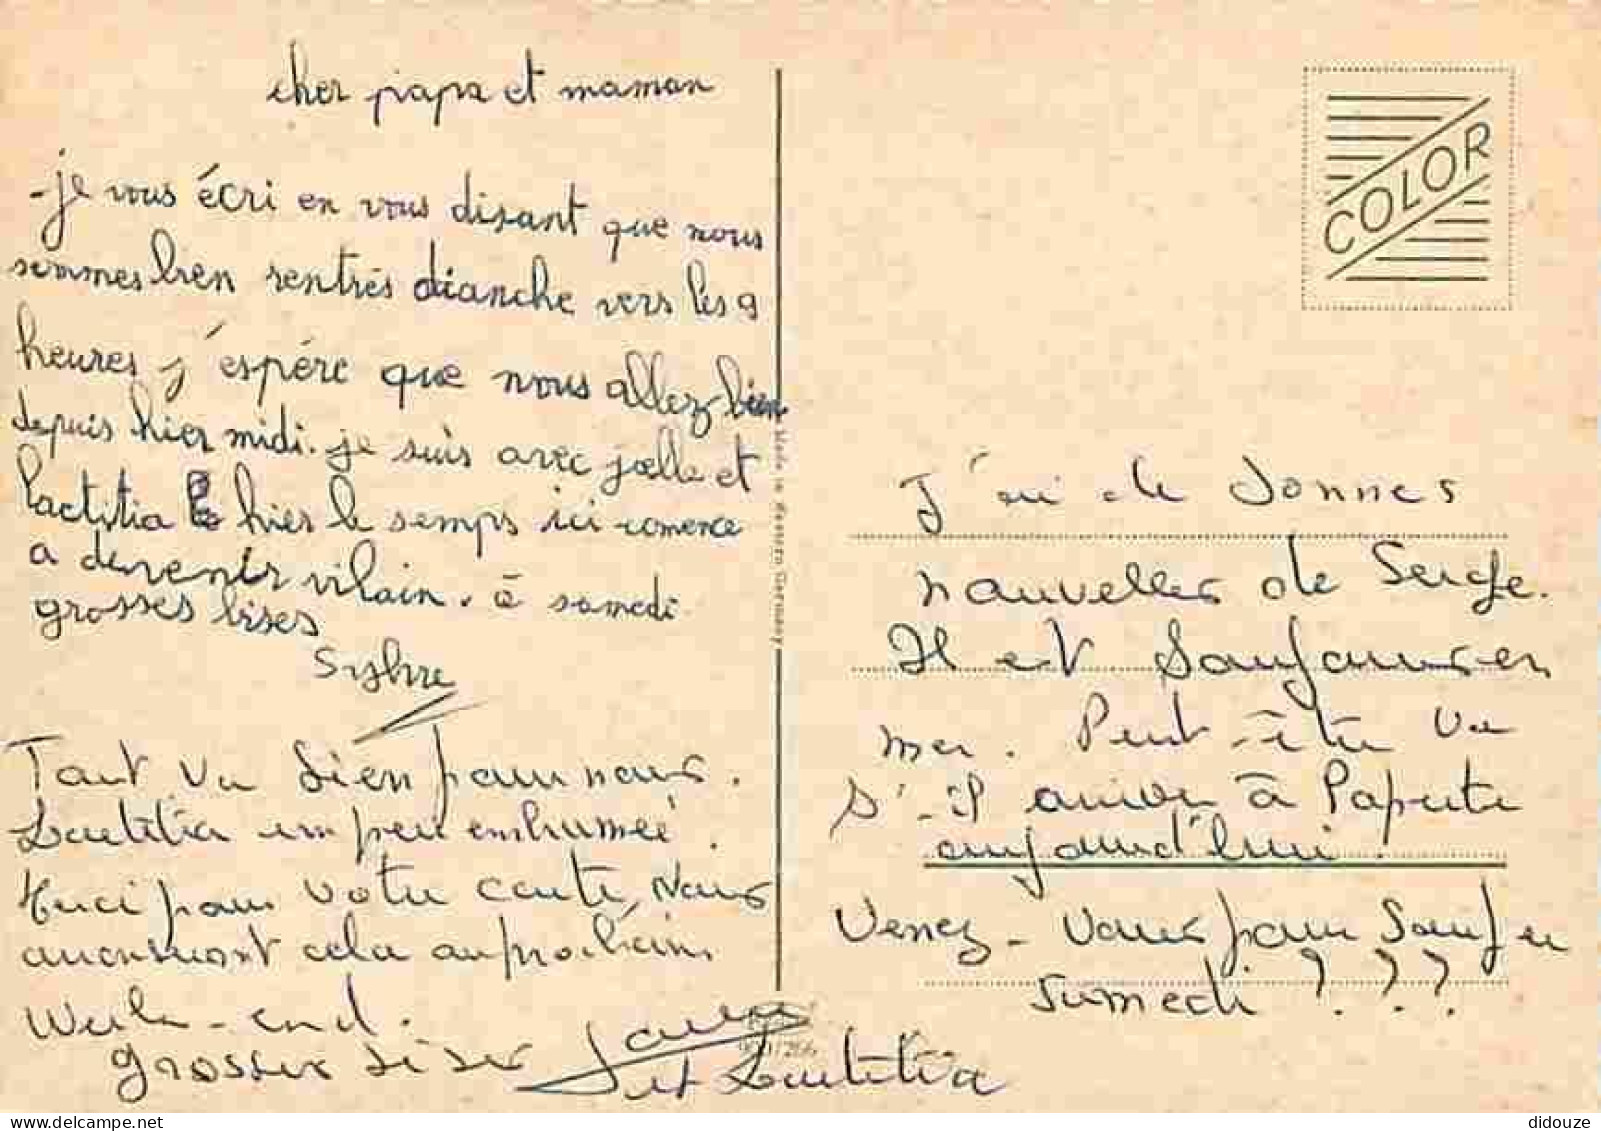 cher papa et maman
-je vous écri en vous disant que nous
sommes bien rentrés dianche vers les 9
heures j'espére que vous allez bien
depuis hier midi. je suis avec joelle et
laetitia hier le temps ici comence
a devenir vilain. à samedi
grosses bises
Sylvie
Tout va bien pour nous.
Laetitia un peu enrhumée.
Merci pour votre carte. Nous
arroserons cela au prochain
Week-end.
Grosses bises
et Laetitia
COLOR
Made in Western Germany
J'ai de bonnes
nouvelles de Serge.
Il est toujours en
mer. Peut-être va
t'-il arriver à Papeete
aujourd'hui.
Venez-vous pour souper
samedi ? ? ?
didouze